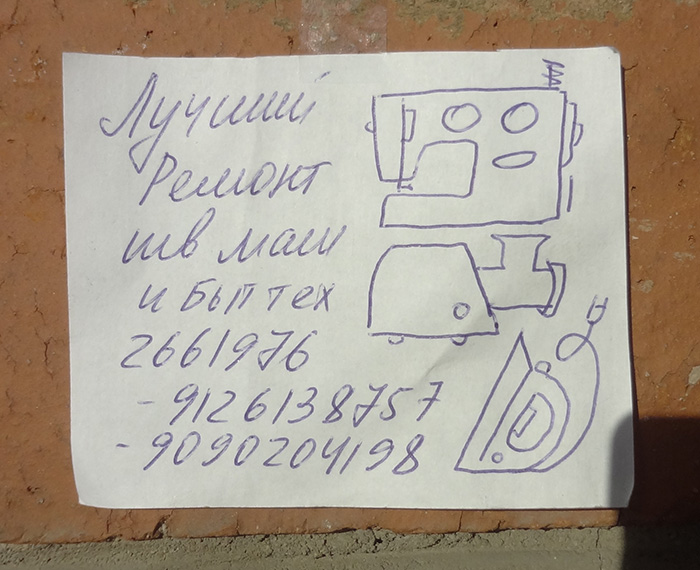 Лучший
Ремонт
шв маш
и Был тех
2661976
-9126138757
-9090204198